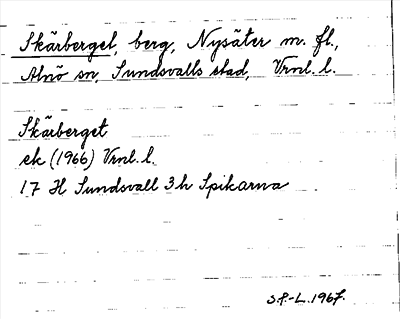 Skärberget, berg, Nysäter m. fl.,
Alnö sn, Sundsvalls stad, Vrnl. l.
Skärberget
ek (1966) Vrnl. l.
17 H Sundsvall 3h Spikarna
S.P.-L. 1967.